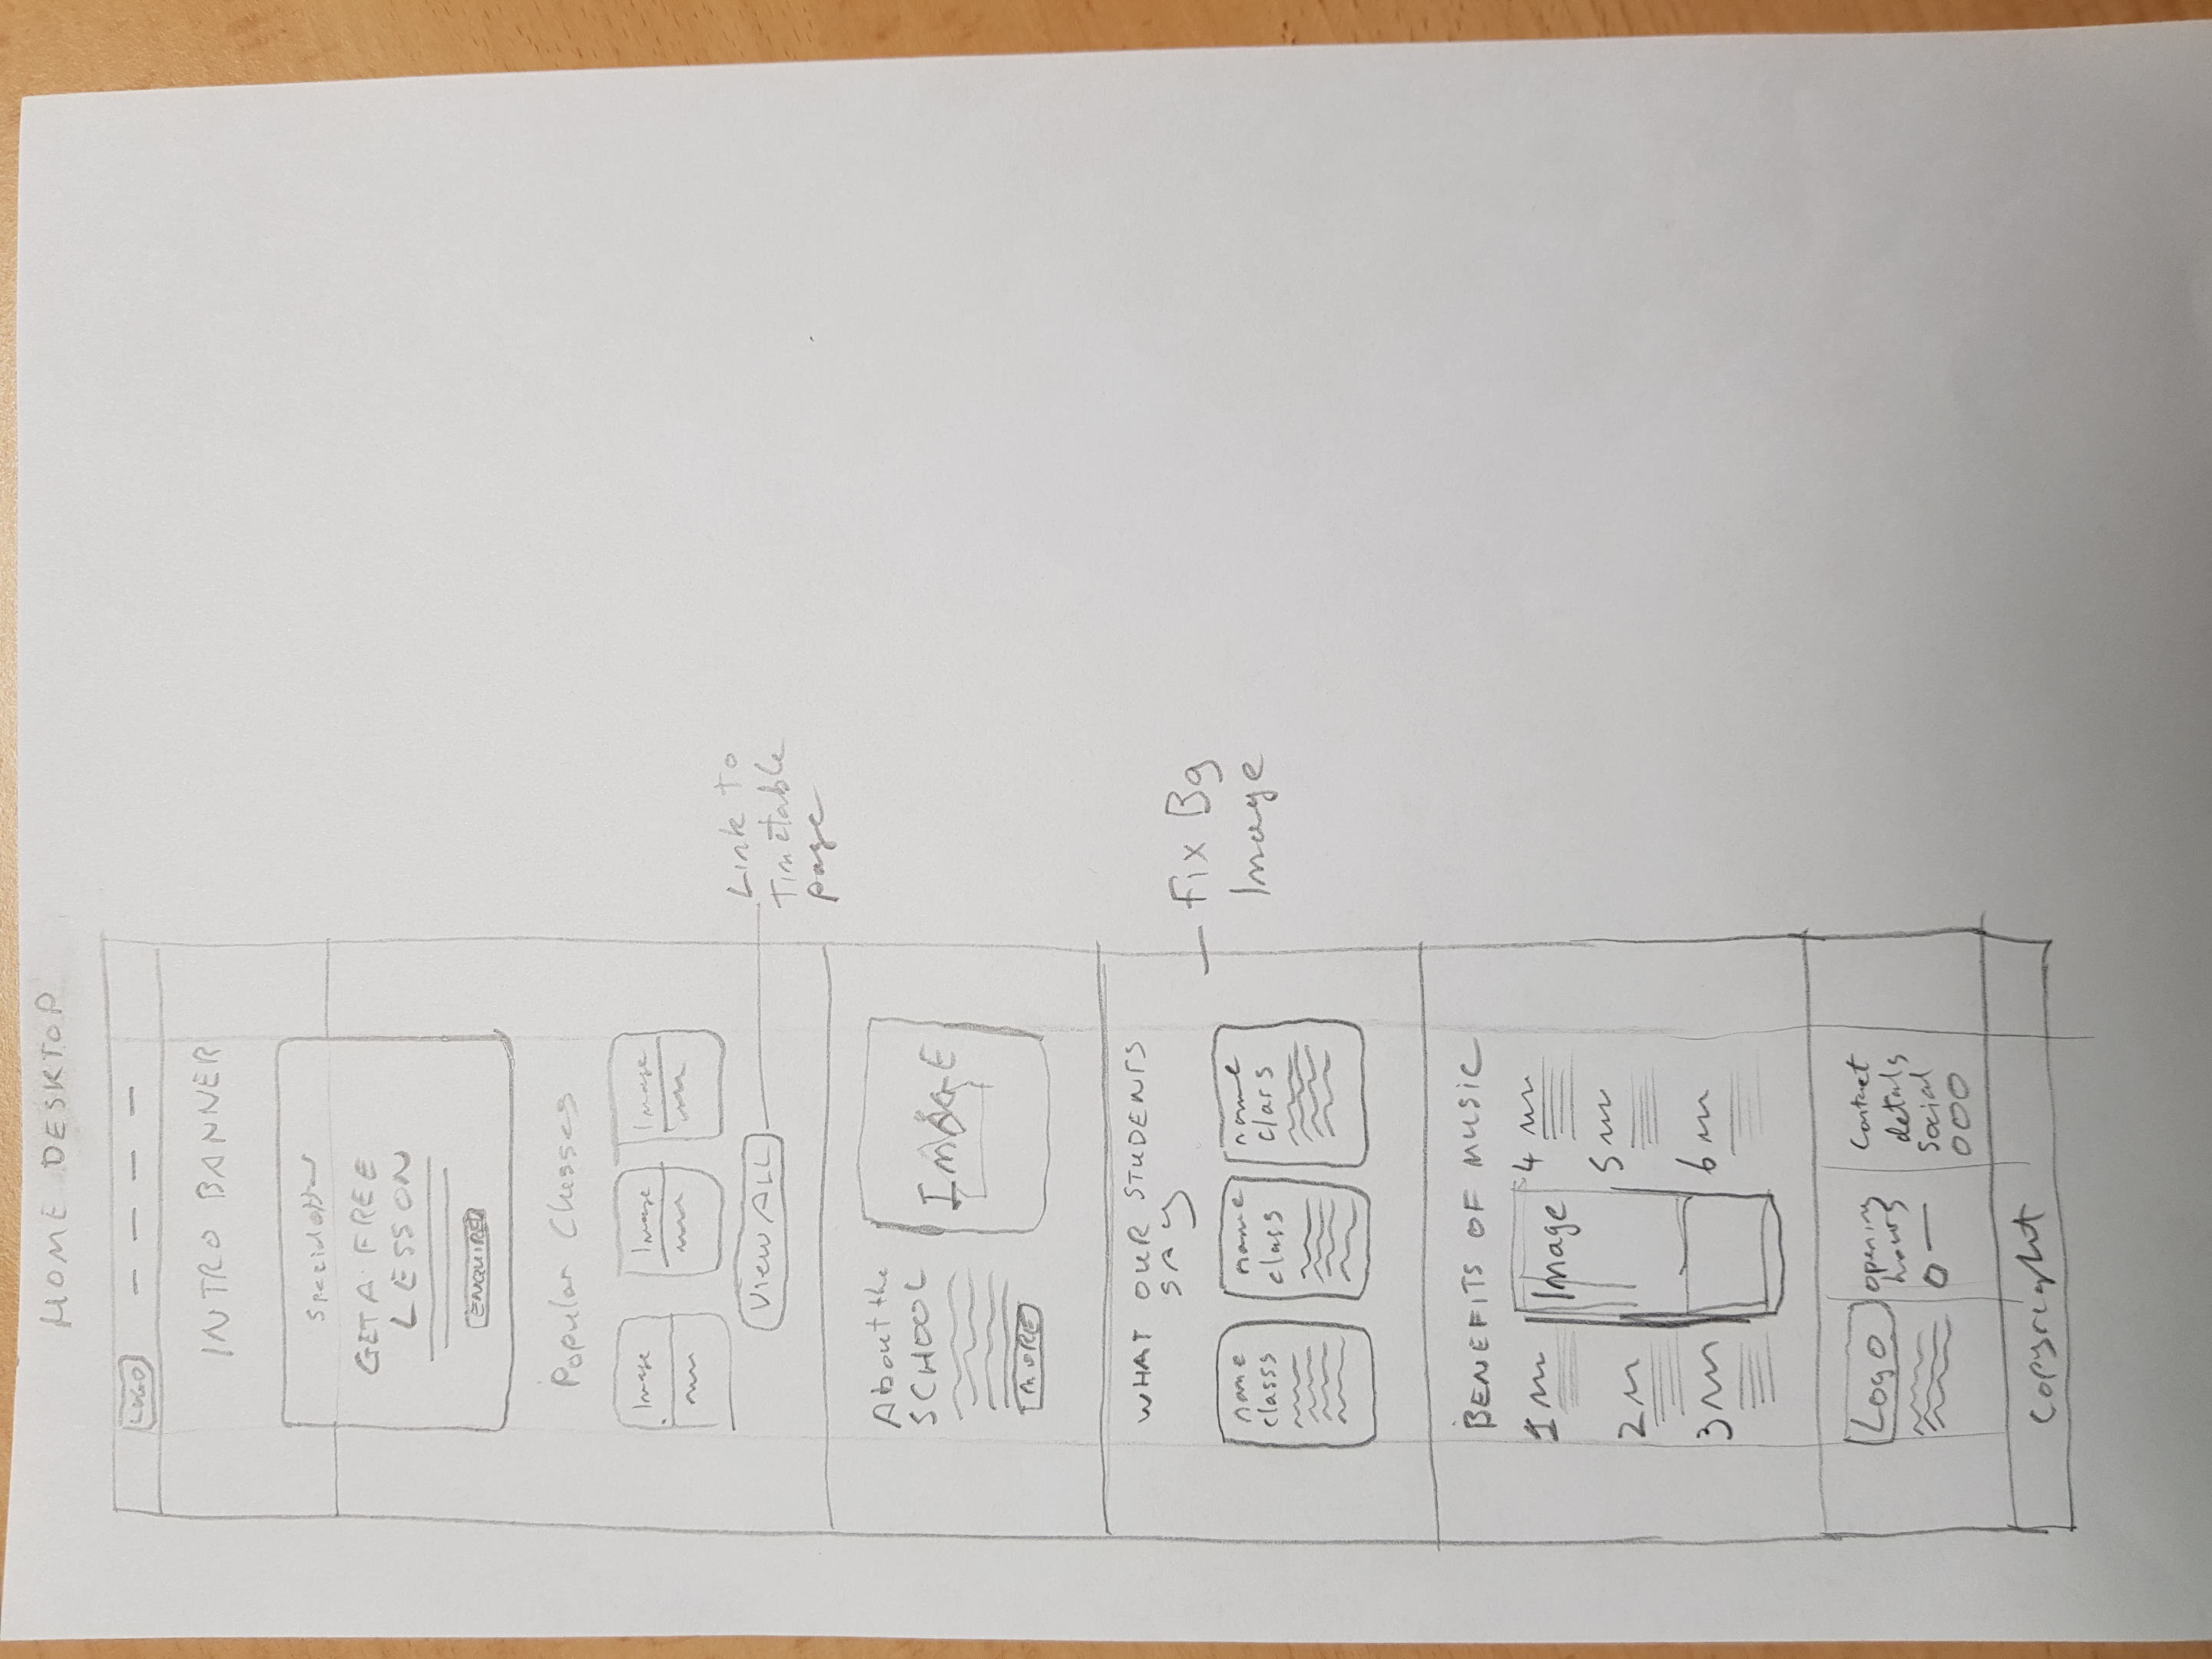 HOME DESKTOP
LOGO
INTRO BANNER
GET A FREE
LESSON
ENQUIRE
Popular Classes
Image
Image
Image
VIEW ALL
Link to
Timetable
page
About the
SCHOOL
MORE
IMAGE
WHAT OUR STUDENTS
SAY
name
classs
name
class
name
class
Fix Bg
Image
BENEFITS OF MUSIC
1
2
3
Image
4
5
6
Logo
opening
hours
Contact
details
social
Copyright